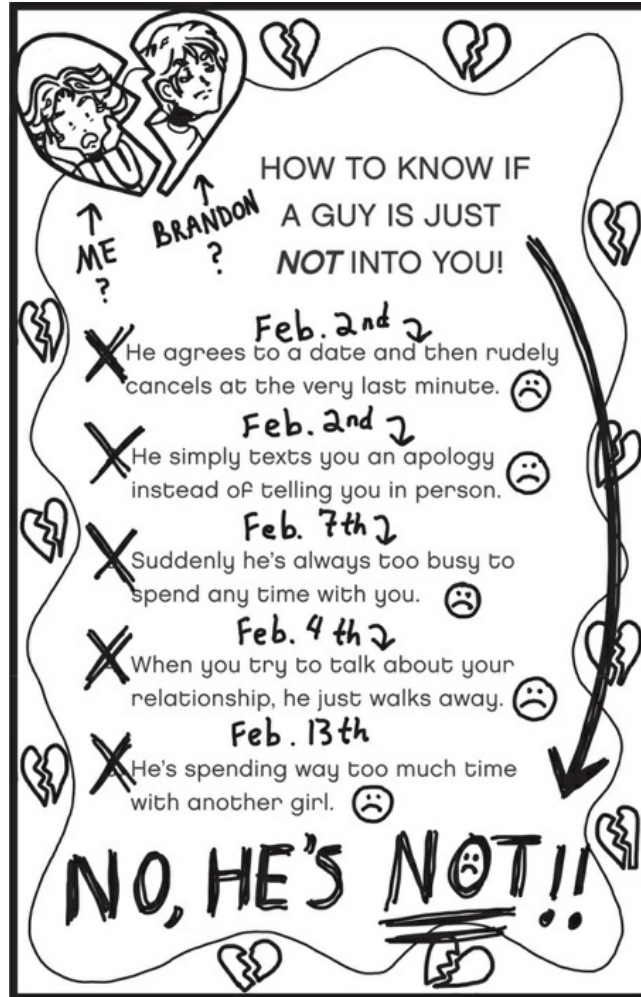 HOW TO KNOW IF
A GUY IS JUST
NOT INTO YOU!
ME
?
BRANDON
?
Feb. 2nd
He agrees to a date and then rudely
cancels at the very last minute.
Feb. 2nd
He simply texts you an apology
instead of telling you in person.
Feb. 7th
Suddenly he's always too busy to
spend any time with you.
Feb. 4th
When you try to talk about your
relationship, he just walks away.
Feb. 13th
He's spending way too much time
with another girl.
NO, HE'S NOT!!